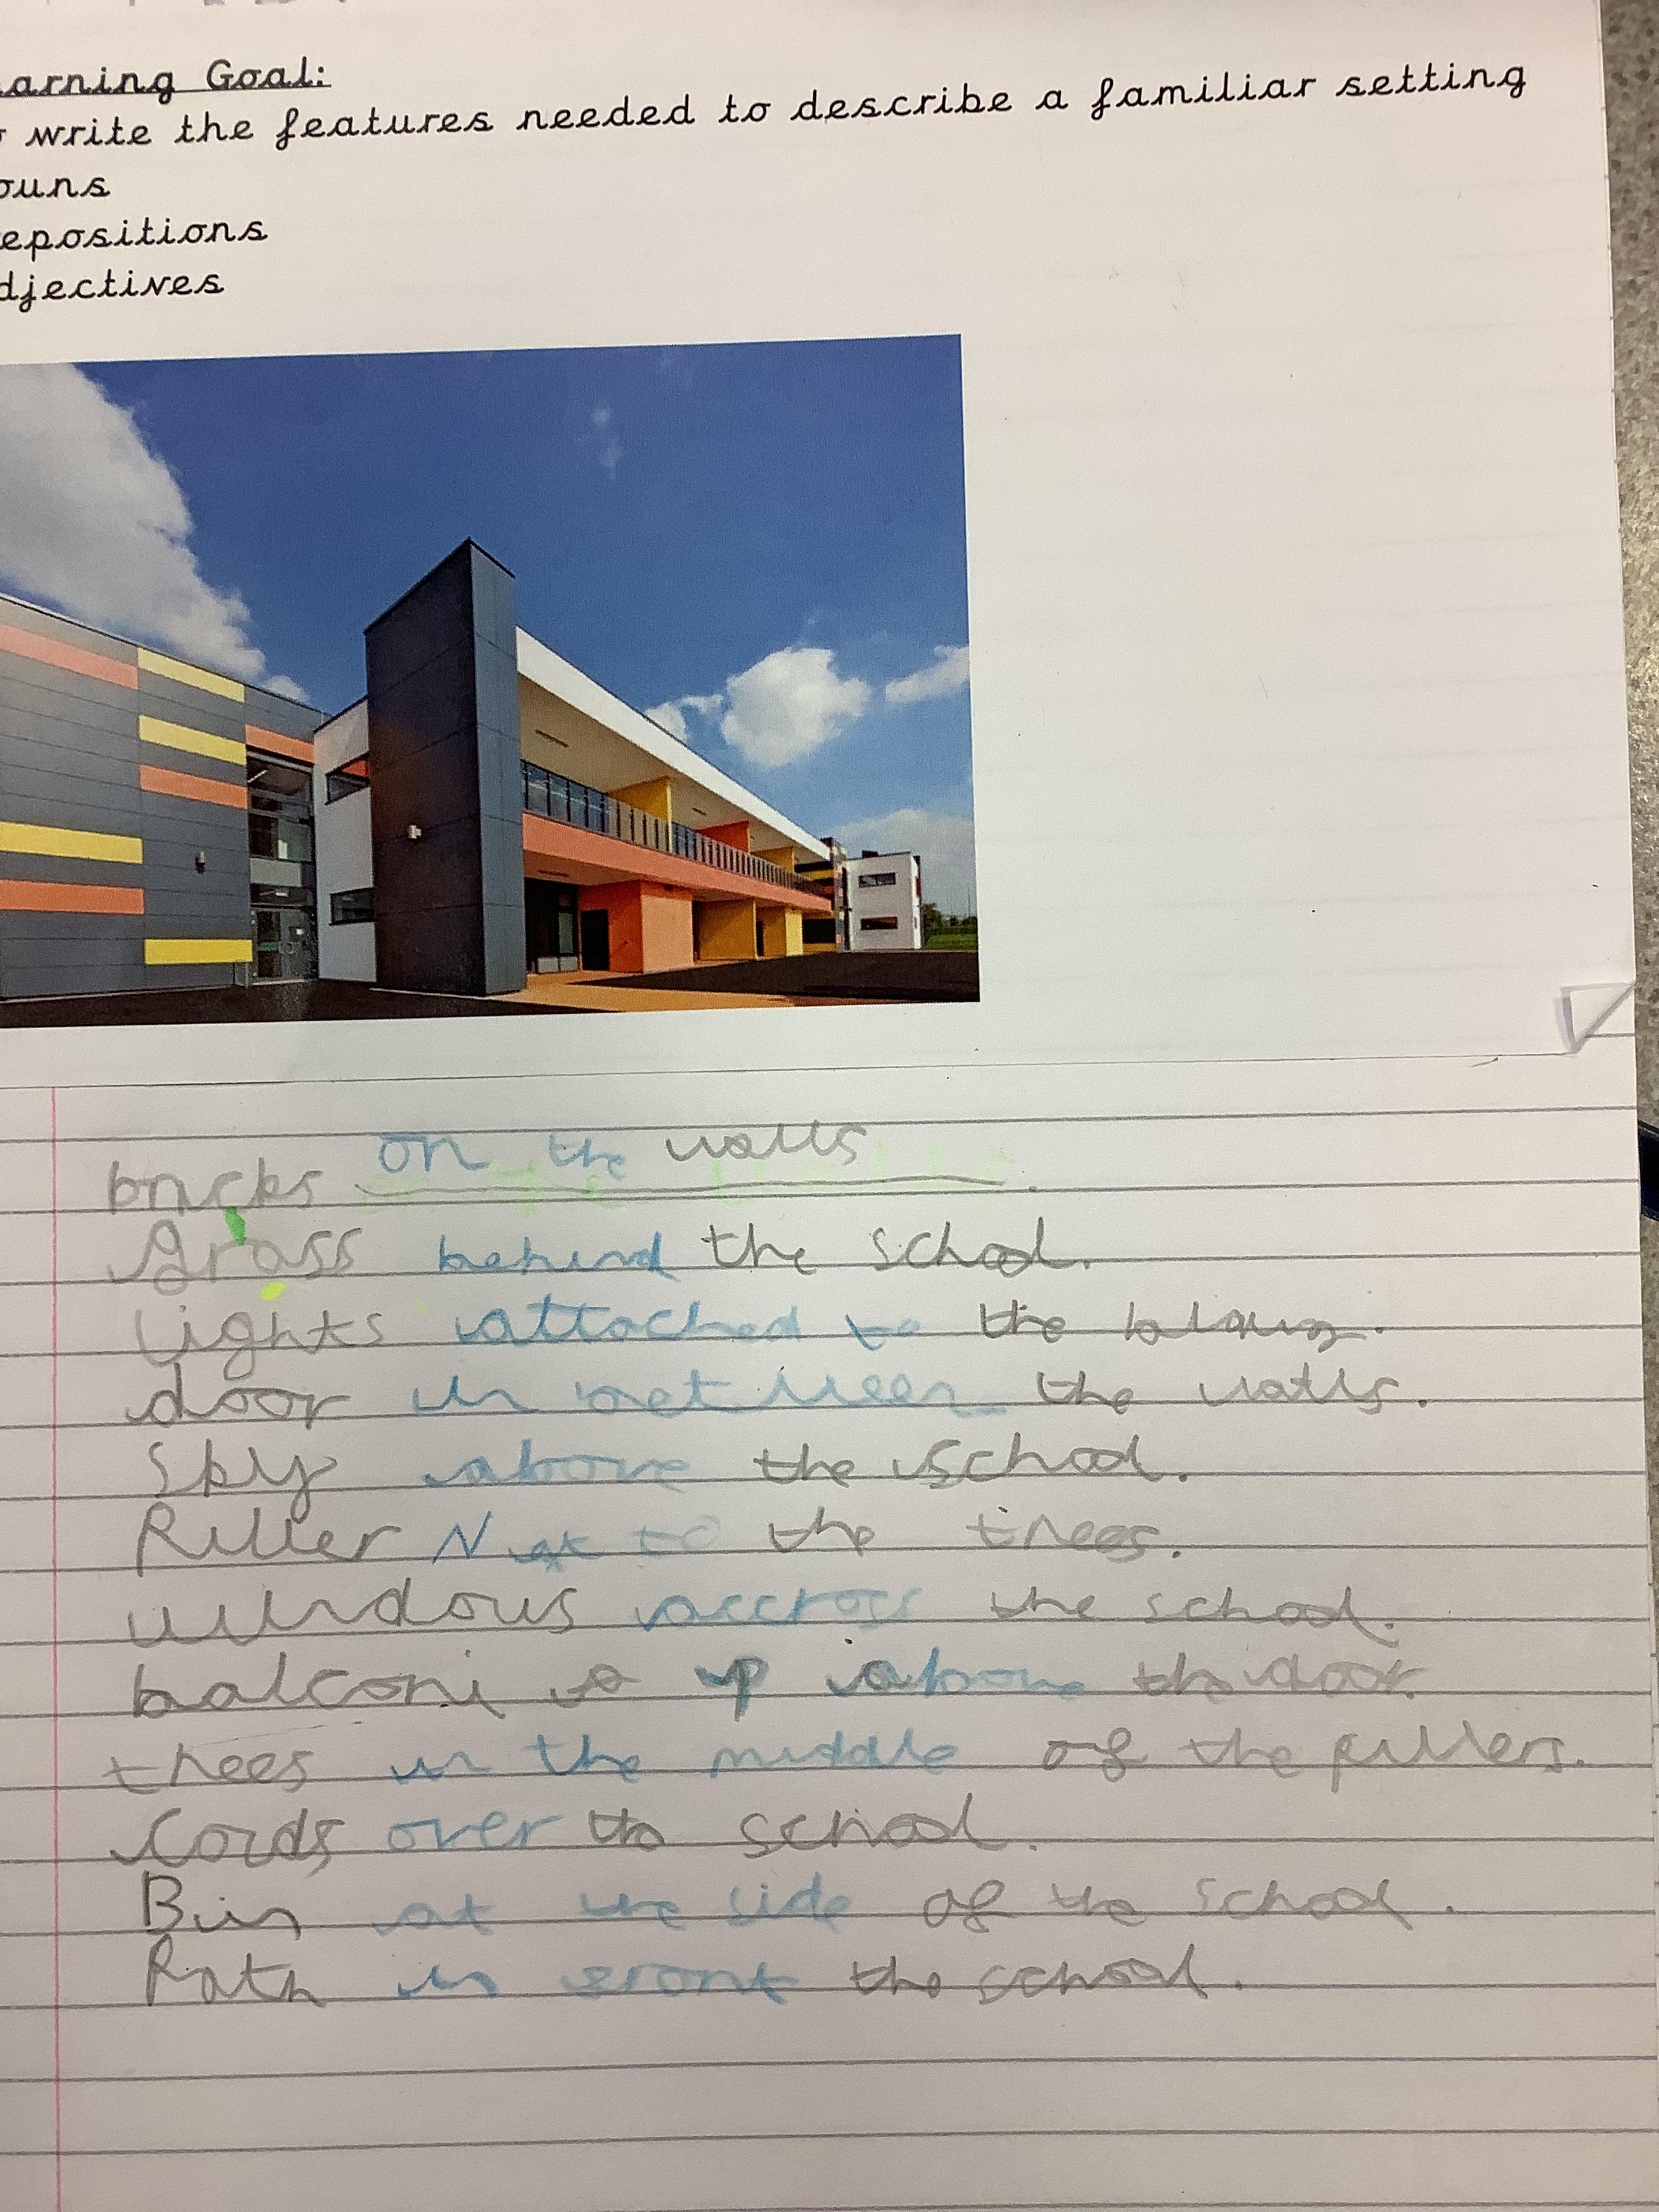 arning Goal:
write the features needed to describe a familiar setting
ouns
epositions
djectives
on the walls
bricks
Grass behind the school.
lights attached to the
door in between the walls.
Sky above the school.
Piller Next to the trees.
windous accross the school.
balconi up above the door.
trees in the middle of the pillers.
over the school.
Bin at the side of the school.
Path in front the school.